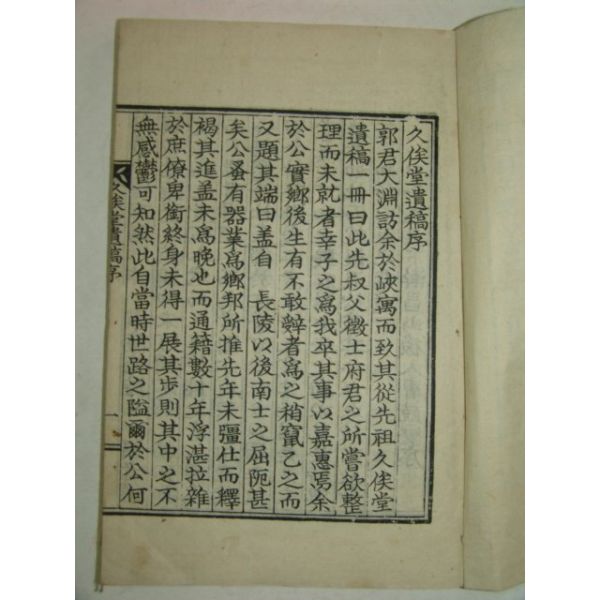 久俟堂遺稿序
郭君大淵訪余於峽寓而致其從先祖久俟堂
遺稿一冊曰此先叔父徵士府君之所嘗欲整
理而未就者幸子之爲我卒其事以嘉惠焉余
於公實鄉後生有不敢辤者爲之稍竄乙之而
又題其端曰盖自 長陵以後南士之屈阨甚
矣公蚤有器業爲鄉邦所推先年未彊仕而釋
褐其進盖未爲晚也而通籍數十年浮湛拉雜
於庶僚卑銜終身未得一展其步則其中之不
無感鬱可知然此自當時世路之隘爾於公何
久俟堂遺稿序
一